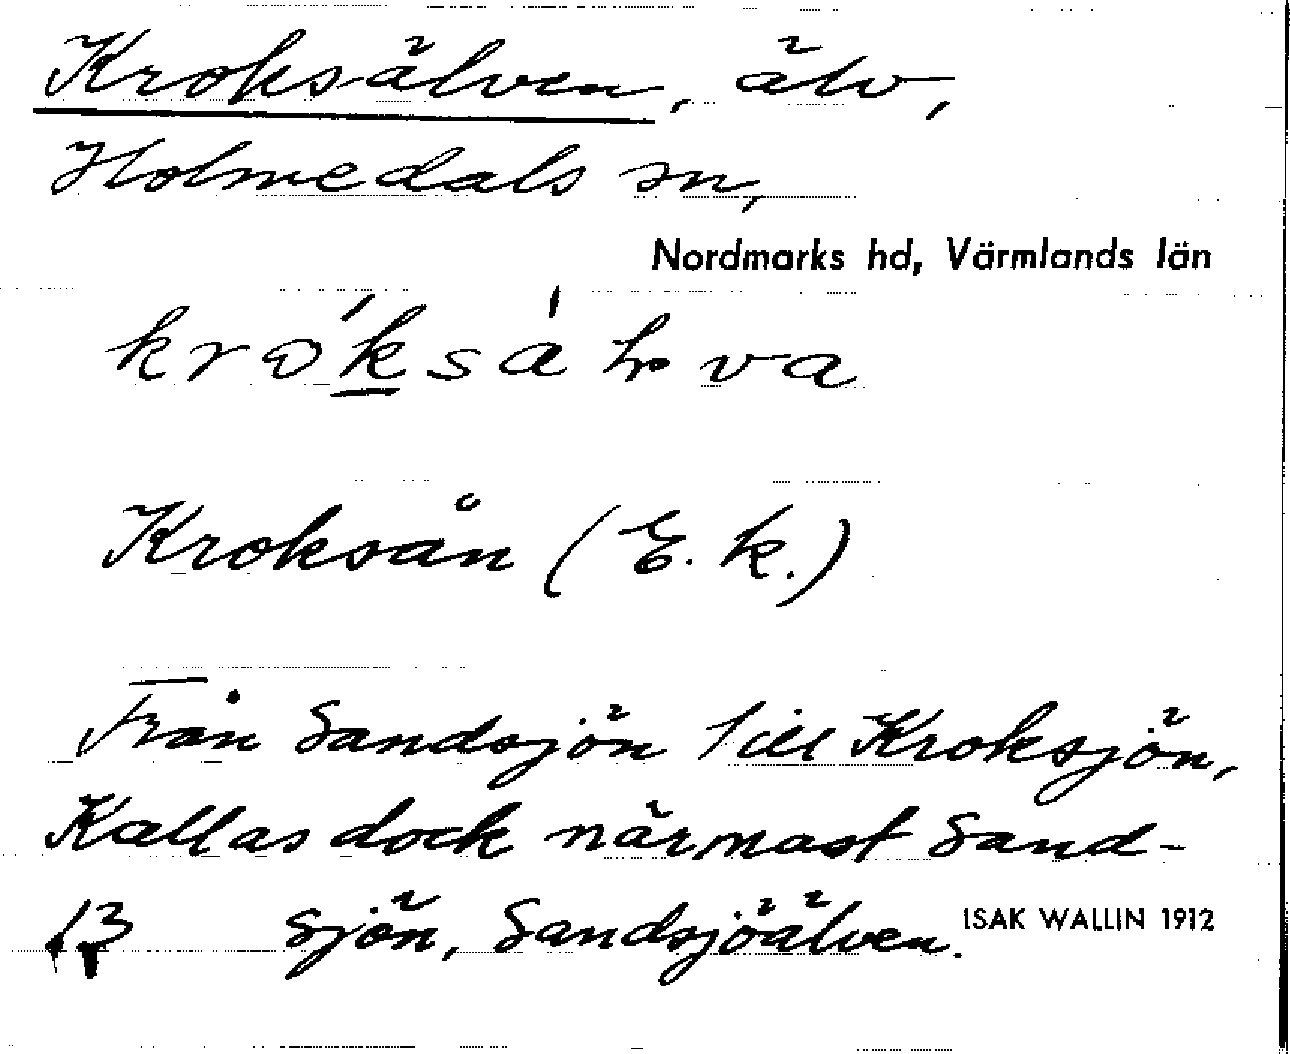 Kroksälven, älv,
Holmedals sn,
Nordmarks hd, Värmlands län
Kroksån (E. k.)
Från Sandsjön till Kroksjön,
Kallas dock närmast Sand-
sjön, Sandsjöälven.
ISAK WALLIN 1912
13